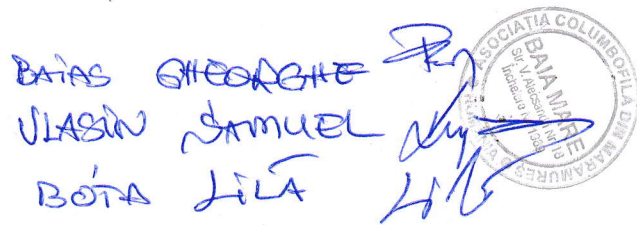 BAIAS GHEORGHE
VLASIN SAMUEL
BOTA LILA
ASOCIATIA COLUMBOFILA DIN MARAMURES
BAIA MARE
Str. V. Alecsandri Nr. 18